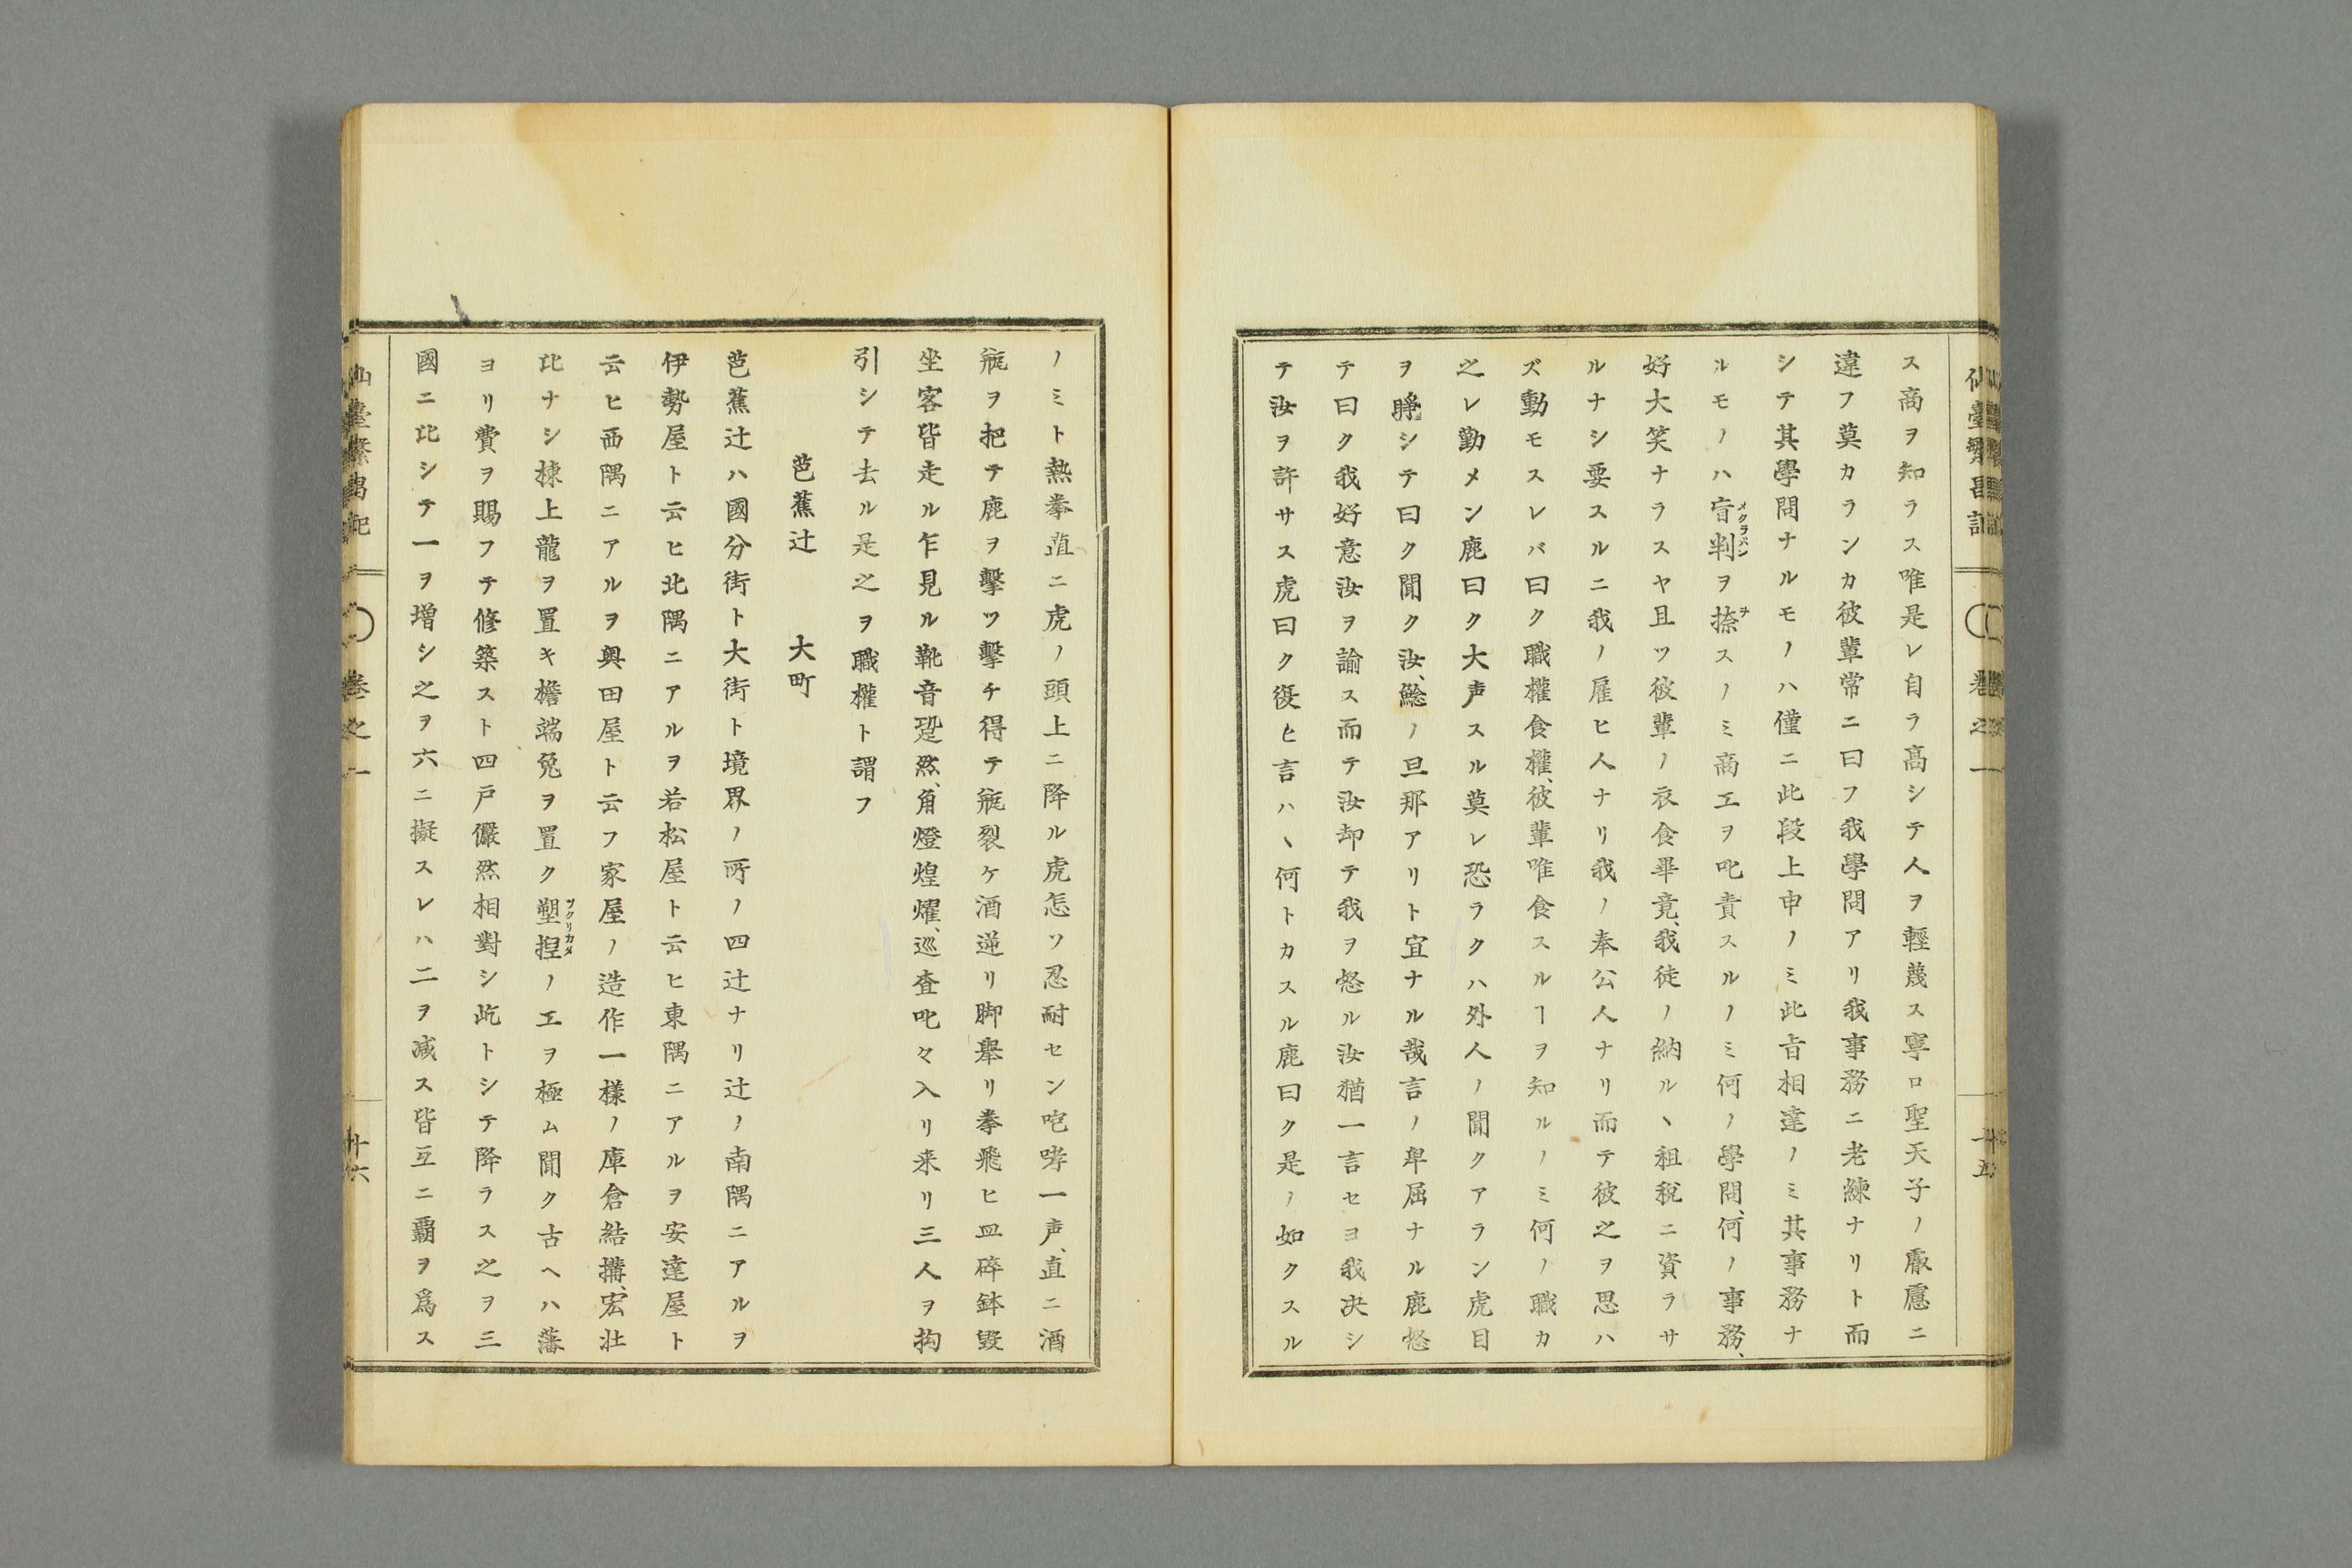 仙臺繁昌記
卷之一
十五
ス商ヲ知ラス唯是レ自ラ髙シテ人ヲ輕蔑ス寧ロ聖天子ノ厪慮ニ
違フ莫カランカ彼輩常ニ曰フ我學問アリ我事務ニ老練ナリト而
シテ其學問ナルモノハ僅ニ此段上申ノミ此旨相達ノミ其事務ナ
ルモノハ盲判ヲ捺スノミ商工ヲ叱責スルノミ何ノ學問、何ノ事務、
メクラバン
ヲ
好大笑ナラスヤ且ツ彼輩ノ衣食畢竟、我徒ノ納ルヽ租税ニ資ラサ
ルナシ要スルニ我ノ雇ヒ人ナリ我ノ奉公人ナリ而テ彼之ヲ思ハ
ズ動モスレバ曰ク職權食權、彼輩唯食スルヿヲ知ルノミ何ノ職カ
之レ勤メン鹿曰ク大声スル莫レ恐ラクハ外人ノ聞クアラン虎目
ヲ睜シテ曰ク聞ク汝、鯰ノ旦那アリト宜ナル哉言ノ卑屈ナル鹿怒
テ曰ク我好意汝ヲ諭ス而テ汝却テ我ヲ怒ル汝猶一言セヨ我决シ
テ汝ヲ許サス虎曰ク復ヒ言ハヽ何トカスル鹿曰ク是ノ如クスル
ノミト熱拳直ニ虎ノ頭上ニ降ル虎怎ソ忍耐セン咆哮一声、直ニ酒
瓶ヲ把テ鹿ヲ擊ツ擊チ得テ瓶裂ケ酒逆リ脚擧リ拳飛ヒ皿碎鉢毀
坐客皆走ル乍見ル靴音跫然、角燈煌燿、巡査叱々入リ来リ三人ヲ拘
引シテ去ル是之ヲ職權ト謂フ
芭蕉辻　大町
芭蕉辻ハ國分街ト大街ト境界ノ所ノ四辻ナリ辻ノ南隅ニアルヲ
伊勢屋ト云ヒ北隅ニアルヲ若松屋ト云ヒ東隅ニアルヲ安達屋ト
云ヒ西隅ニアルヲ奥田屋ト云フ家屋ノ造作一樣ノ庫倉結搆、宏壯
比ナシ棟上龍ヲ置キ檐端兔ヲ置ク塑揑ノ工ヲ極ム聞ク古ヘハ藩
ツクリカタ
ヨリ費ヲ賜フテ修築スト四戸儼然相對シ屹トシテ降ラス之ヲ三
國ニ比シテ一ヲ増シ之ヲ六ニ擬スレハ二ヲ减ス皆互ニ覇ヲ爲ス
仙臺繁昌記
卷之一
十六